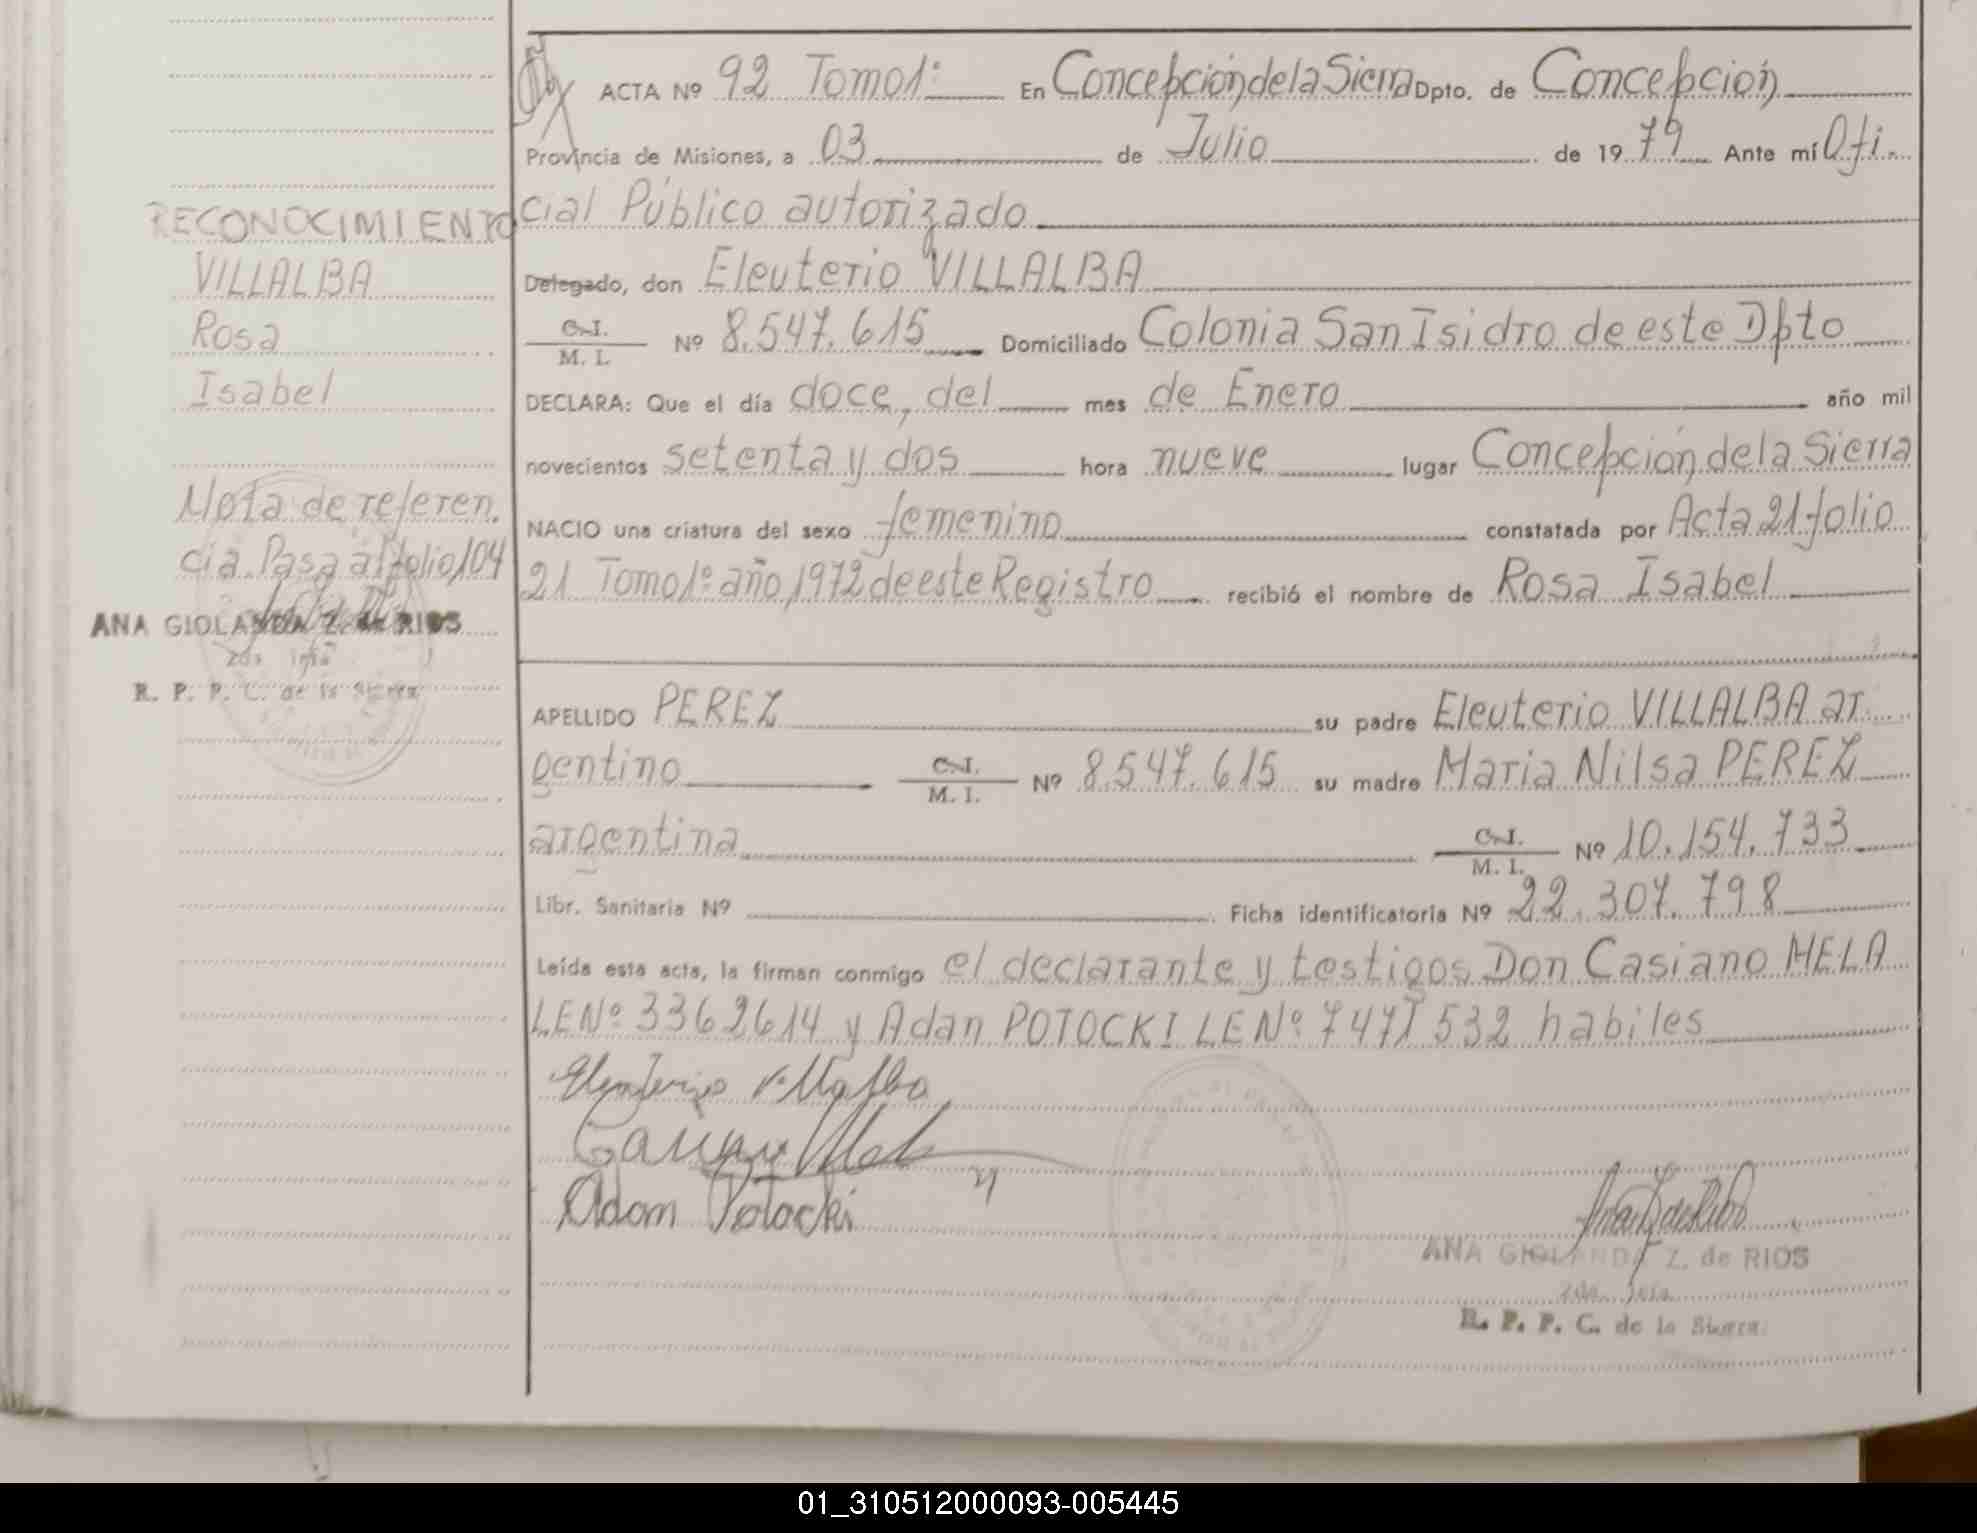 ACTA Nº 92 Tomo 1º En Concepción de la Sierra Dpto. de Concepción
Provincia de Misiones, a 03 de Julio de 1979 Ante mí Ofi-
RECONOCIMIENTO
VILLALBA
Rosa
Isabel
Nota de referen.
cia. Pasa al folio 104
ANA GIOLANDA Z. de RIOS
2da. Jefa
R. P. P. C. de la Sierra
cial Público autorizado
Delegado, don Eleuterio VILLALBA
C.I. / M. I. Nº 8.547.615 Domiciliado Colonia San Isidro de este Dpto
DECLARA: Que el día doce, del mes de Enero año mil
novecientos setenta y dos hora nueve lugar Concepción de la Sierra
NACIO una criatura del sexo femenino constatada por Acta 21 folio
21 Tomo 1º año 1972 de este Registro recibió el nombre de Rosa Isabel
APELLIDO PEREZ su padre Eleuterio VILLALBA ar
gentino C.I. / M. I. Nº 8.547.615 su madre Maria Nilsa PEREZ
argentina C.I. / M. I. Nº 10.154.733
Libr. Sanitaria Nº Ficha identificatoria Nº 22.307.798
Leída esta acta, la firman conmigo el declarante y testigos Don Casiano MELA
LE Nº 3362614 y Adan POTOCKI LE Nº 7471532 habiles
Eleuterio Villalba
Adam Potocki
ANA GIOLANDA Z. de RIOS
2da. Jefa
R. P. P. C. de la Sierra
01_310512000093-005445